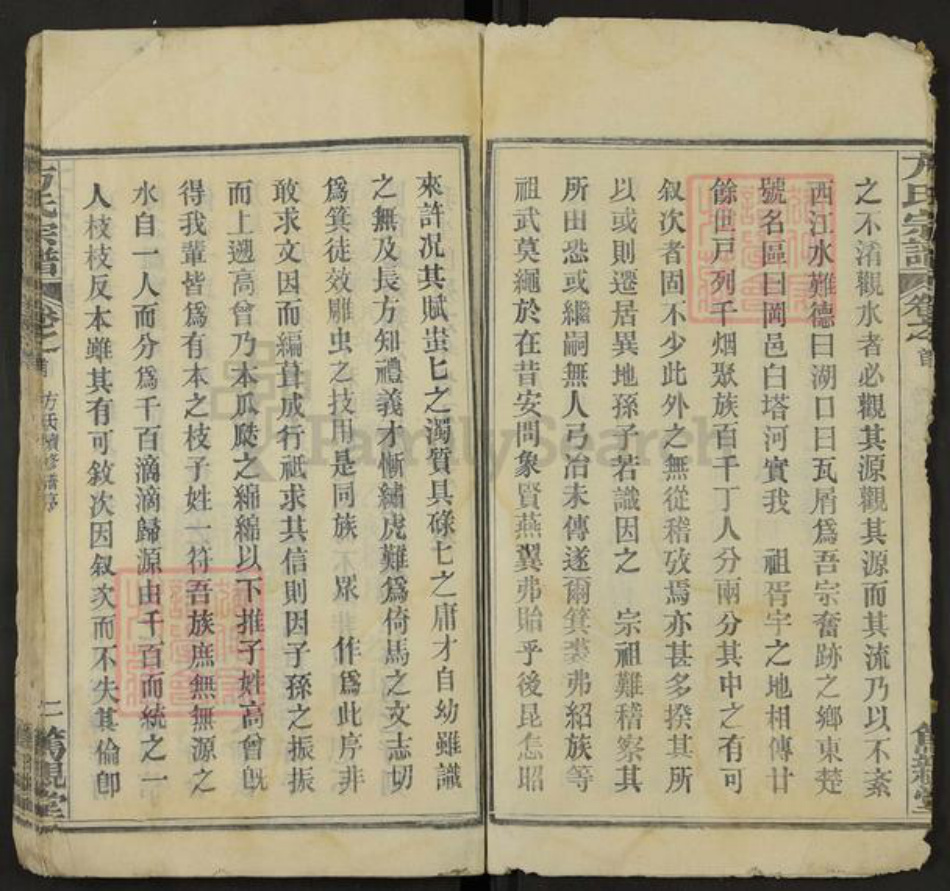 之不淆觀水者必觀其源觀其源而其流乃以不紊
西江水難德曰湖口曰瓦屑爲吾宗奮跡之鄉東楚
號名區曰岡邑白塔河實我 祖胥宇之地相傳廿
餘世戸列千烟聚族百千丁人分兩分其中之有可
叙次者固不少此外之無從稽攷焉亦甚多揆其所
以或則遷居異地孫子若識因之 宗祖難稽察其
所由恐或繼嗣無人弓冶未傳遂爾箕裘弗紹族等
祖武莫繩於在昔安問象賢燕翼弗貽乎後昆怎昭
來許况其賦蚩匕之濁質具碌七之庸才自幼雖識
之無及長方知禮義才慚繡虎難爲倚馬之文志切
爲箕徒效雕虫之技用是同族 眾 作爲此序非
敢求文因而編葺成行祇求其信則因子孫之振振
而上遡高曾乃本瓜瓞之綿綿以下推子姓高曾旣
得我輩皆爲有本之枝子姓一符吾族庶無無源之
水自一人而分爲千百滴滴歸源由千百而統之一
人枝枝反本雖其有可敘次因叙次而不失其倫卽
方氏宗譜 卷之首 方氏續修譜序 二 篤親堂
FamilySearch